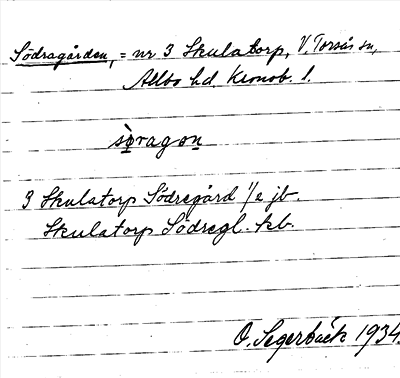 Södragården, = nr 3 Skulatorp, V. Torsås sn,
Allbo hd. Kronob. l.
sọ̈ragọn
3 Skulatorp Södregård 1/2 jb.
Skulatorp Södregl. kb.
O. Segerbäck 1934.